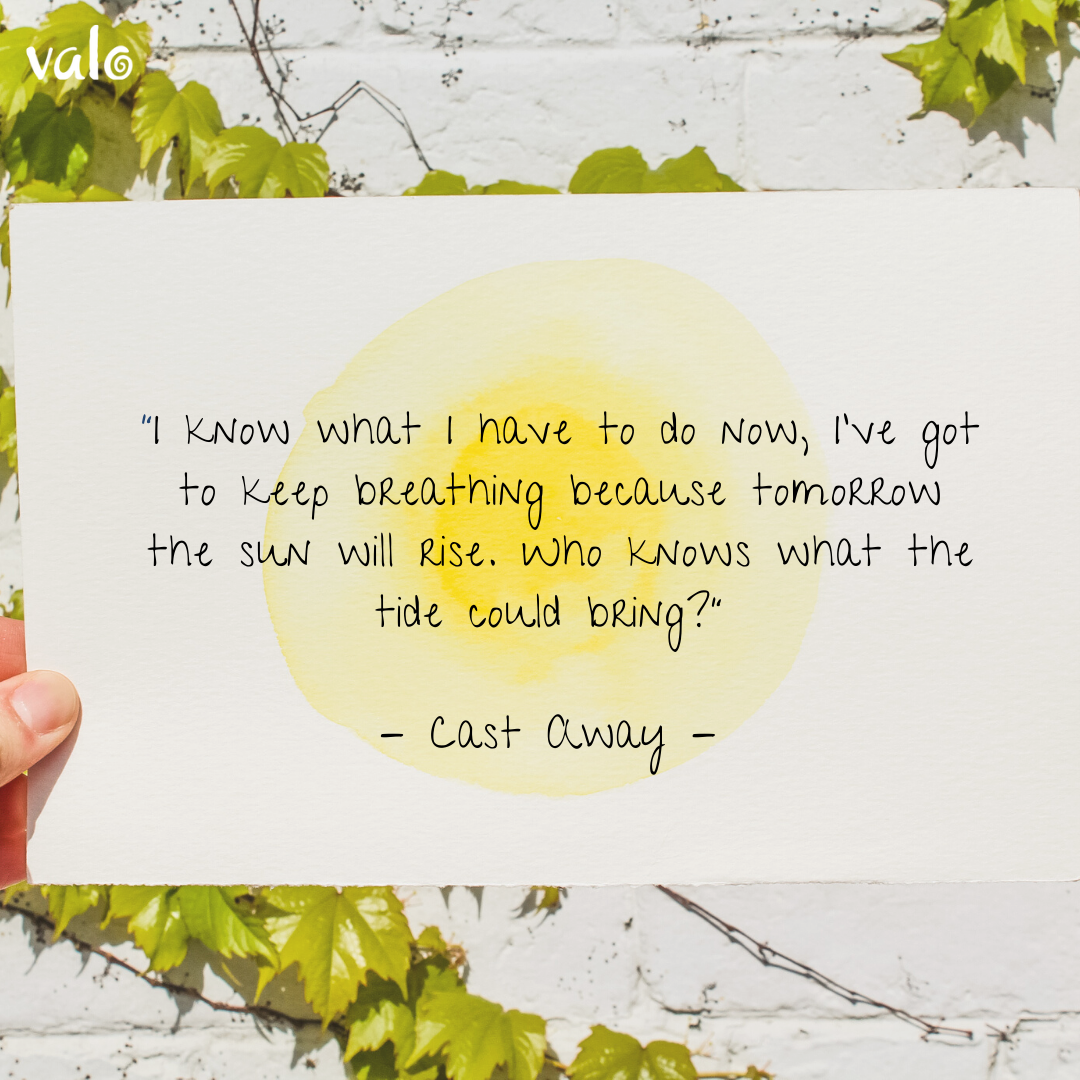 valo
"I know what I have to do now, I've got
to keep breathing because tomorrow
the sun will rise. Who knows what the
tide could bring?"
- Cast Away -